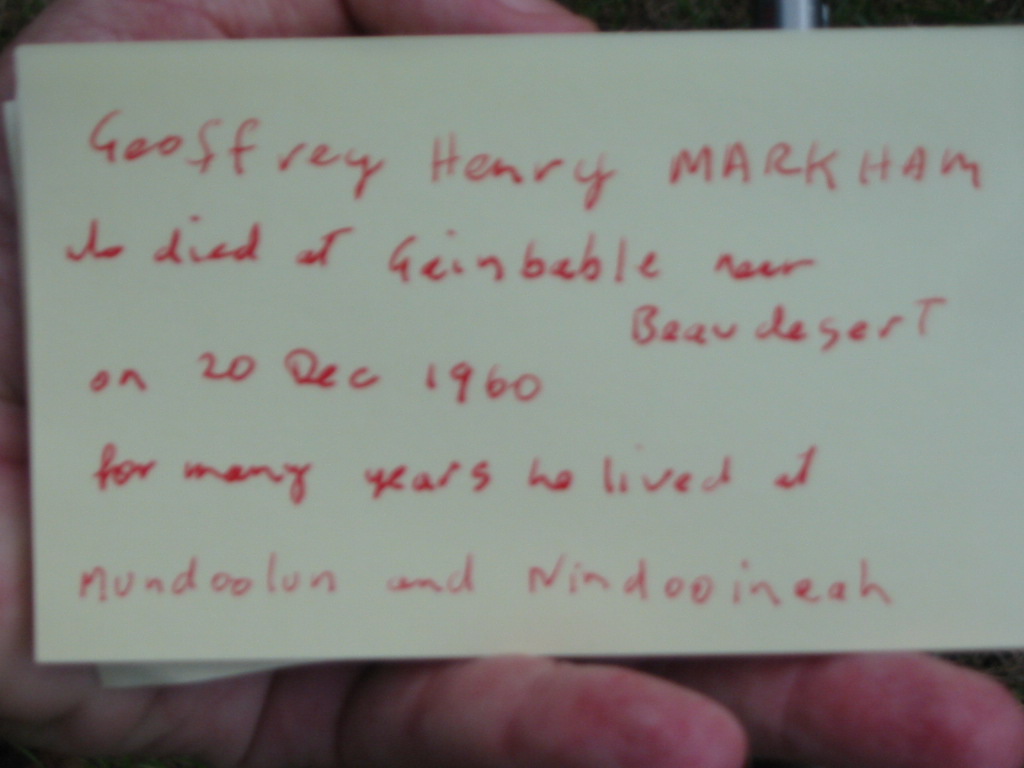 Geoffrey Henry MARKHAM
who died at Geinbable near
Beaudesert
on 20 Dec 1960
for many years he lived at
Mundoolun and Nindooineah